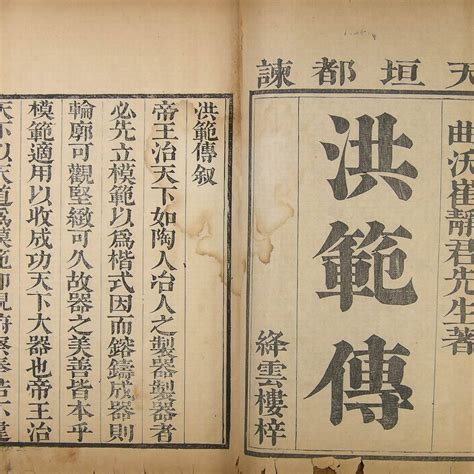 天垣都諫
曲沃崔靜君先生著
洪範傳
絳雲樓梓
洪範傳叙
帝王治天下如陶人冶人之製器製器者
必先立模範以爲楷式因而鎔鑄成器則
輪廓可觀堅緻可久故器之美善皆本乎
模範適用以收成功天下大器也帝王治
天下以天道爲模範察奉若不違